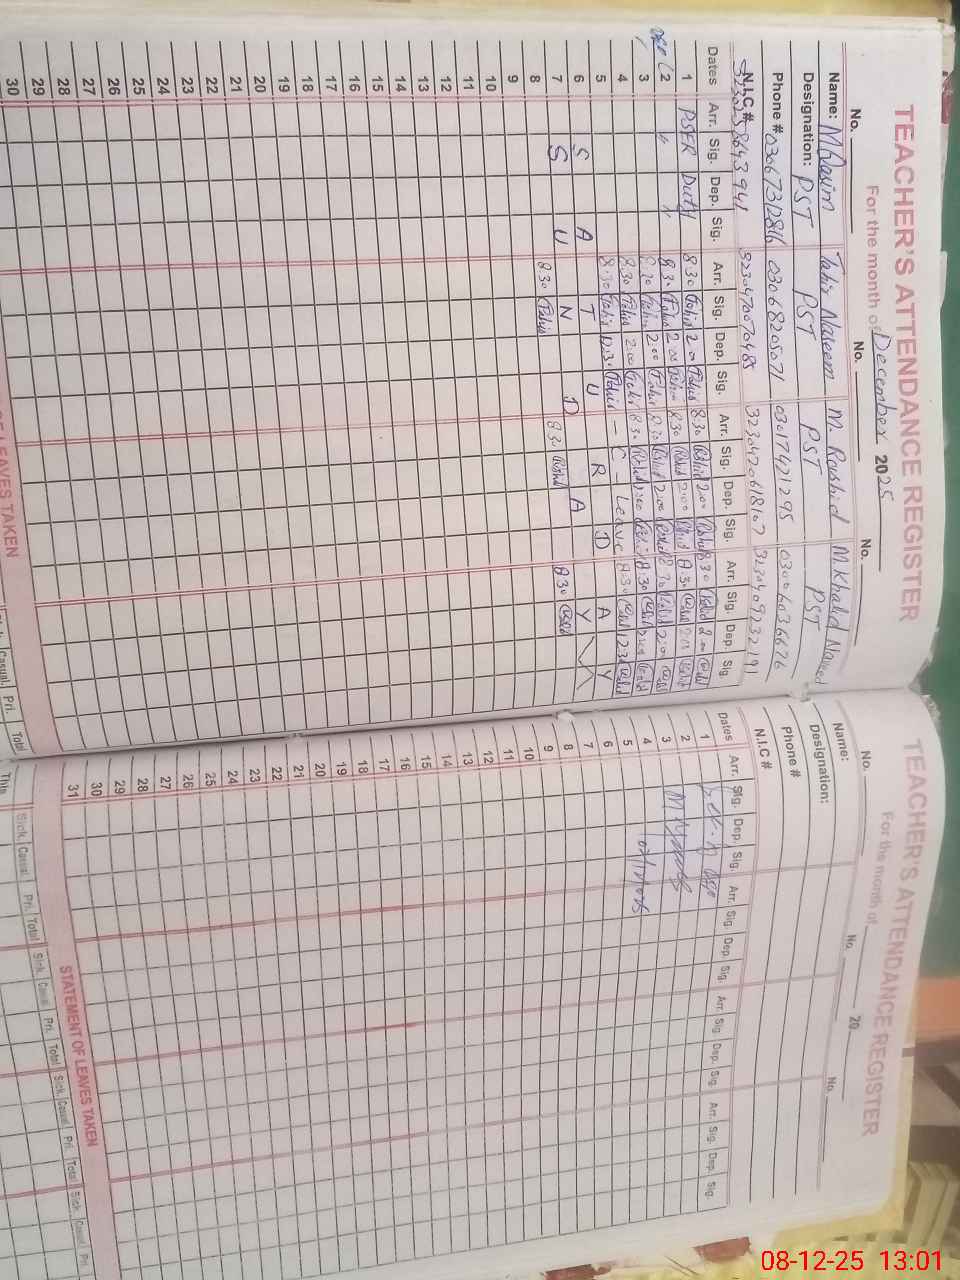 TEACHER'S ATTENDANCE REGISTER
For the month of December 2025
No. No. No. No.
Name: M Qasim Tahir Naseem M. Rashid M. Khalid Naveed
Designation: PST PST PST PST
Phone # 03067312816 03068205071 03017421295 03006036676
N.I.C # 3230470070485 3230420618107 3230409232191
Dates Arr. Sig. Dep. Sig. Arr. Sig. Dep. Sig. Arr. Sig. Dep. Sig. Arr. Sig. Dep. Sig.
1 PSER Duty 8 30 Tahir 2 00 Tahir 8 30 Rashid 2.00 Rashid 8 30 Khalid 2 00 Khalid
2 " " 8 30 Tahir 2 00 Tahir 8 30 Rashid 2.00 Rashid 8.30 Khalid 2.00 Khalid
3 8 30 Tahir 2.00 Tahir 8 30 Rashid 2.00 Rashid 8 30 Khalid 2.00 Khalid
4 8.30 Tahir 2.00 Tahir 8 30 Rashid 2.00 Rashid 8.30 Khalid 2.00 Khalid
5 8.30 Tahir 12.30 Tahir - C - Leave 8.30 Khalid 12.30 Khalid
6 S A T U R D A Y
7 S U N D A Y
8 8 30 Tahir 8 30 Rashid 8 30 Khalid
9
10
11
12
13
14
15
16
17
18
19
20
21
22
23
24
25
26
27
28
29
30
OF LEAVES TAKEN
Casual. Pri. Total
TEACHER'S ATTENDANCE REGISTER
For the month of 20
No. No. No.
Name:
Designation:
Phone #
N.I.C #
Dates Arr. Sig. Dep. Sig. Arr. Sig. Dep. Sig. Arr. Sig. Dep. Sig. Arr. Sig. Dep. Sig.
1
2
3
4
5
6
7
8
9
10
11
12
13
14
15
16
17
18
19
20
21
22
23
24
25
26
27
28
29
30
31
STATEMENT OF LEAVES TAKEN
This Sick. Casual Pri. Total Sick. Casual Pri. Total Sick. Casual Pri. Total Sick. Casual Pri.
08-12-25 13:01